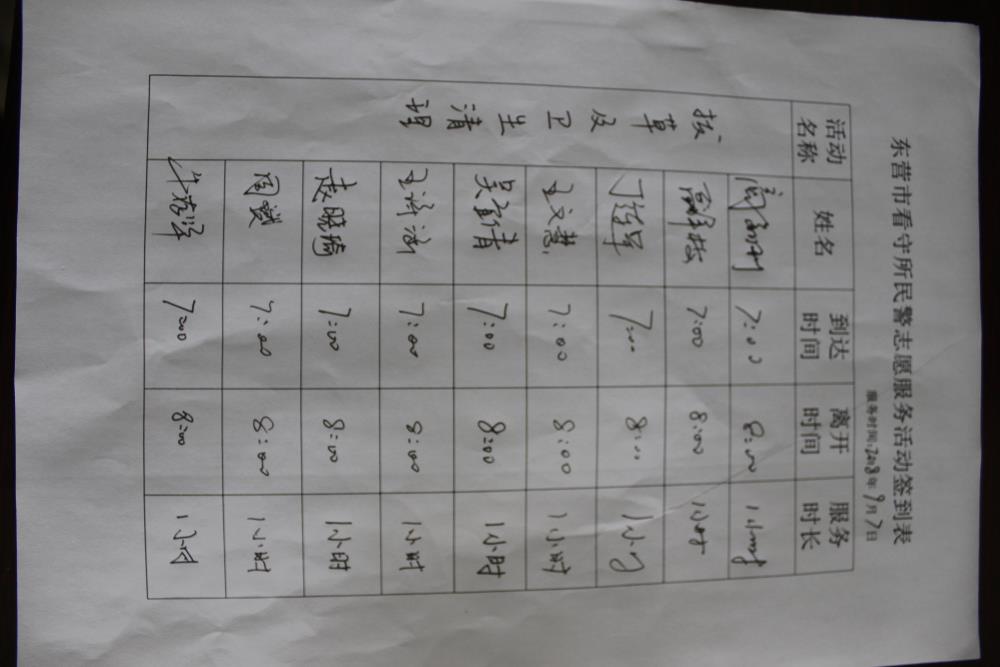 东营市看守所民警志愿服务活动签到表
服务时间:2018年9月7日
活动名称 姓名 到达时间 离开时间 服务时长
拔草及卫生清理
7:00 8:00 1小时
7:00 8:00 1小时
丁连军 7:00 8:00 1小时
王文慧 7:00 8:00 1小时
7:00 8:00 1小时
7:00 8:00 1小时
袁晓琦 7:00 8:00 1小时
7:00 8:00 1小时
7:00 8:00 1小时